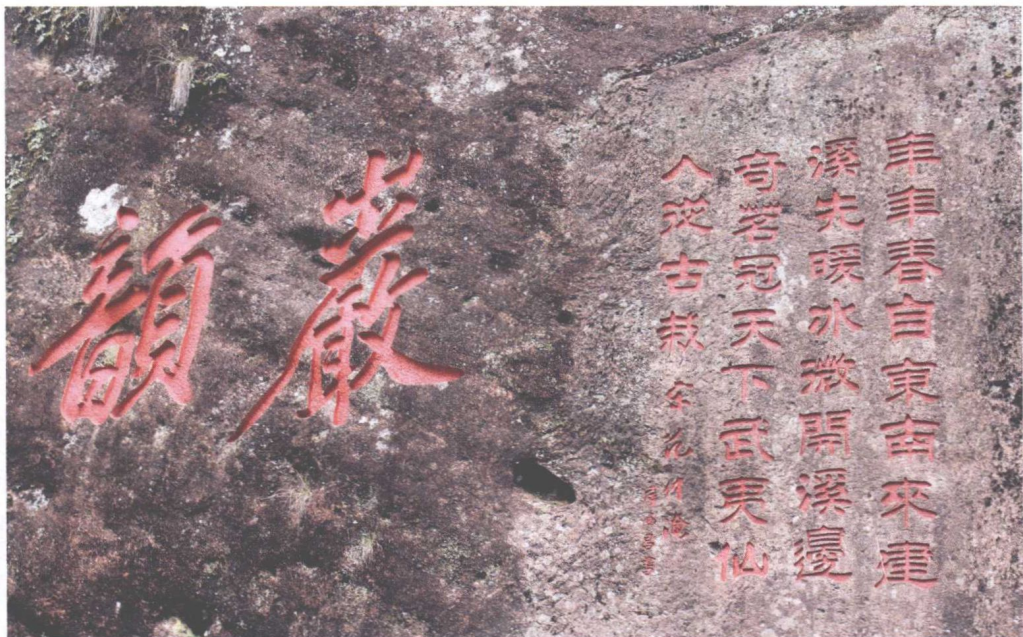 年年春自東南來建
溪先暖冰微開溪邊
奇茗冠天下武夷仙
人從古栽 宋 范仲淹
巖韻